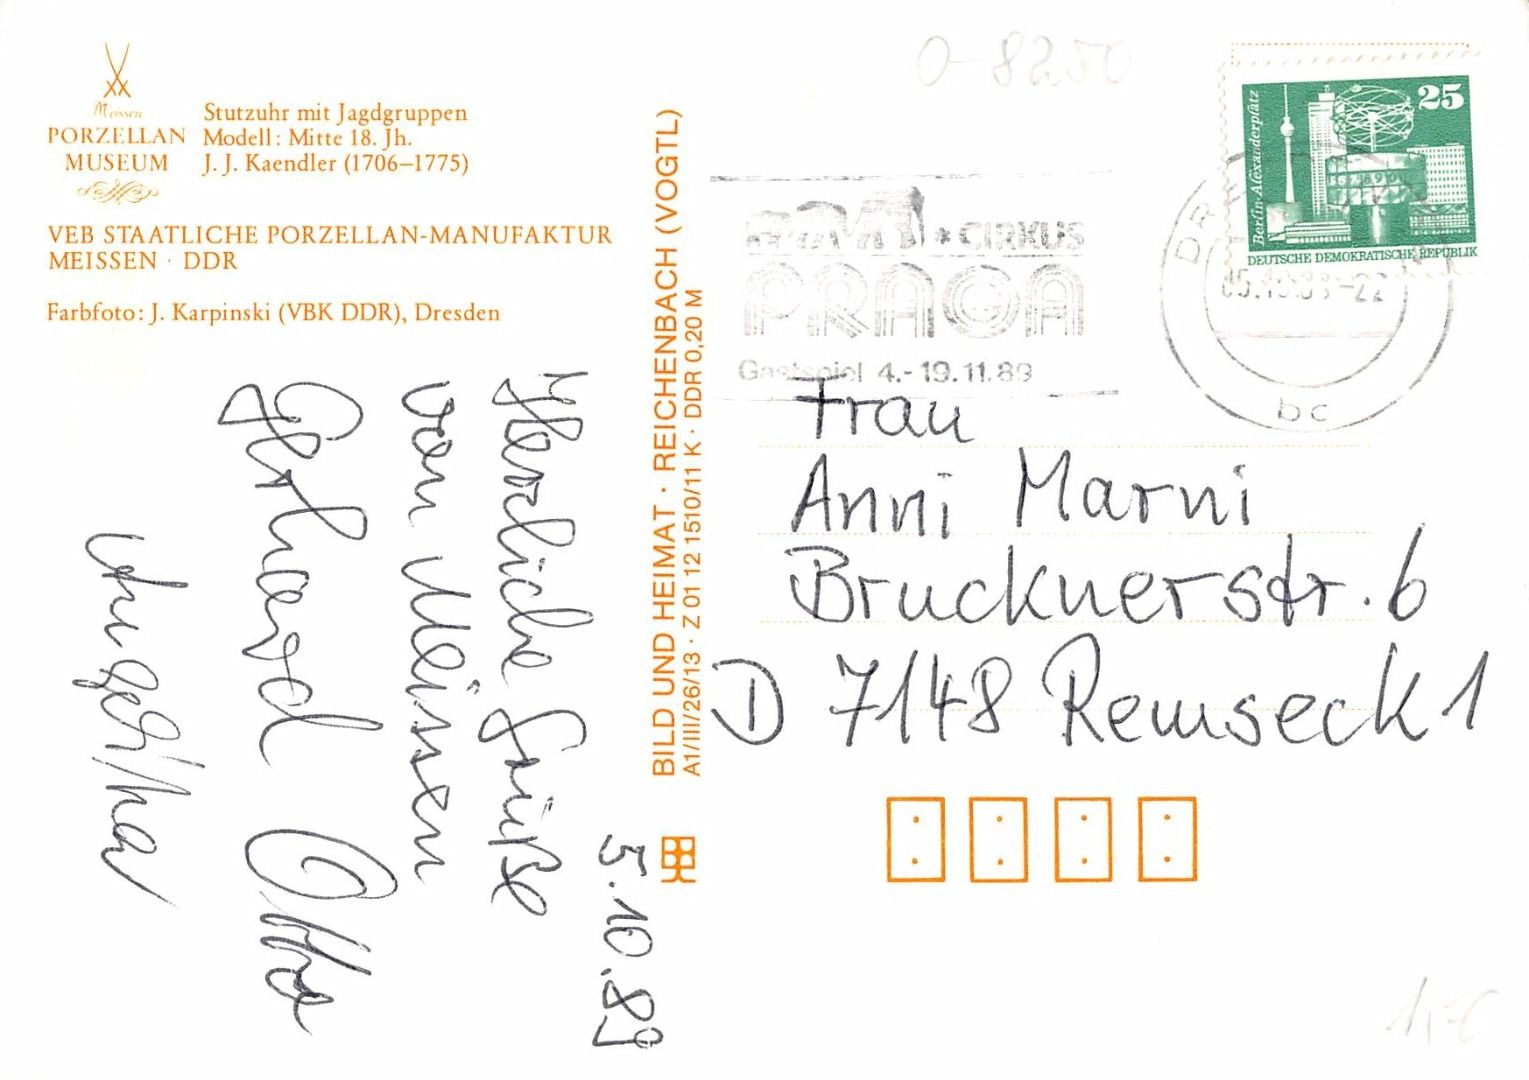 0-8250
Meissen
PORZELLAN
MUSEUM
Stutzuhr mit Jagdgruppen
Modell: Mitte 18. Jh.
J. J. Kaendler (1706–1775)
VEB STAATLICHE PORZELLAN-MANUFAKTUR
MEISSEN · DDR
Farbfoto: J. Karpinski (VBK DDR), Dresden
5.10.89
Herzliche Grüße
von Meissen
Gerhard Otto
BILD UND HEIMAT · REICHENBACH (VOGTL)
A1/III/26/13 · Z 01 12 1510/11 K · DDR 0,20 M
* CIRKUS
PRAGA
Gastspiel 4.-19.11.89
25
Berlin-Alexanderplatz
DEUTSCHE DEMOKRATISCHE REPUBLIK
bc
Frau
Anni Marni
Brucknerstr. 6
D 7148 Remseck 1